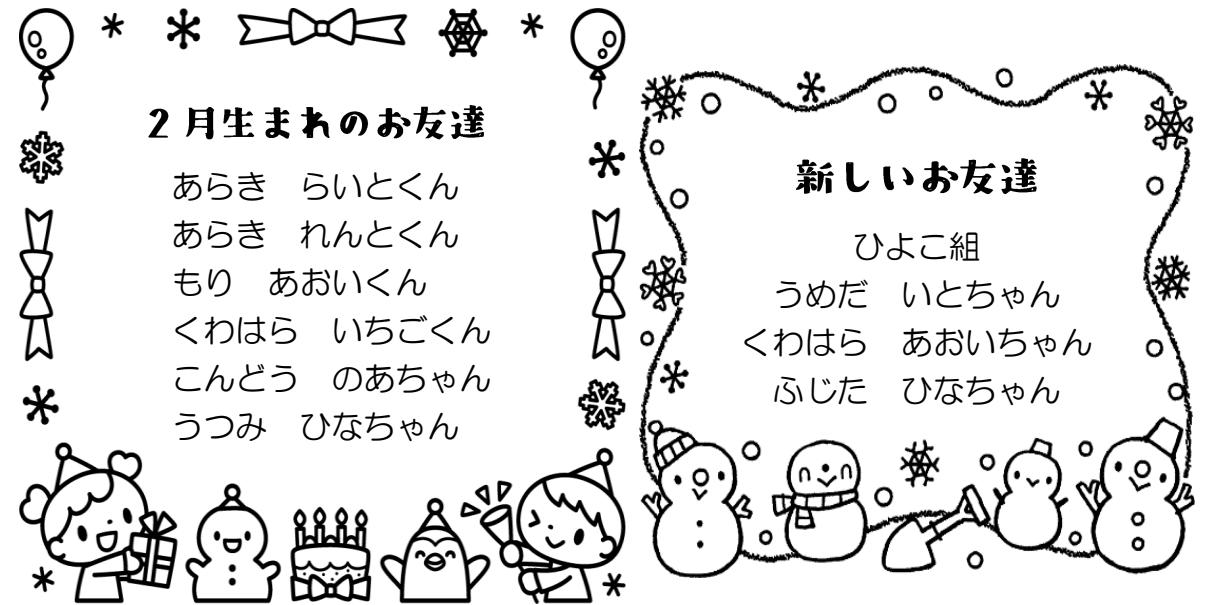 2月生まれのお友達
あらき　らいとくん
あらき　れんとくん
もり　あおいくん
くわはら　いちごくん
こんどう　のあちゃん
うつみ　ひなちゃん
新しいお友達
ひよこ組
うめだ　いとちゃん
くわはら　あおいちゃん
ふじた　ひなちゃん